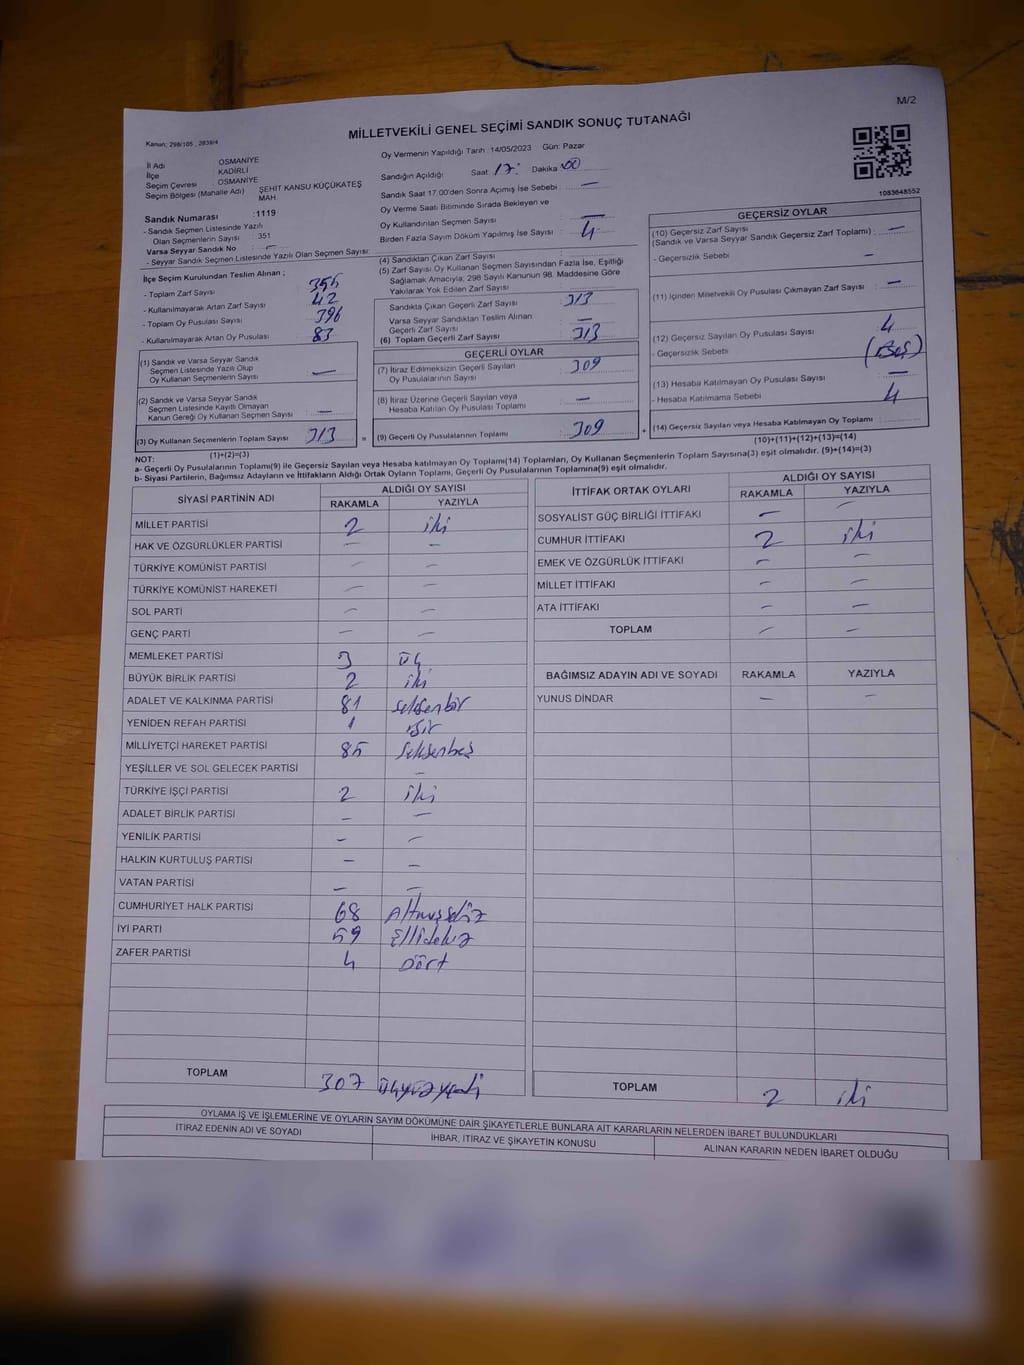 M/2
MİLLETVEKİLİ GENEL SEÇİMİ SANDIK SONUÇ TUTANAĞI
Kanun; 298/105 , 2839/4
İl Adı OSMANİYE
İlçe KADİRLİ
Seçim Çevresi : OSMANİYE
Seçim Bölgesi (Mahalle Adı) ŞEHİT KANSU KÜÇÜKATEŞ MAH.
Sandık Numarası :1119
- Sandık Seçmen Listesinde Yazılı
Olan Seçmenlerin Sayısı 351
Varsa Seyyar Sandık No : —
- Seyyar Sandık Seçmen Listesinde Yazılı Olan Seçmen Sayısı:
Oy Vermenin Yapıldığı Tarih : 14/05/2023 Gün: Pazar
Sandığın Açıldığı Saat 17: Dakika 00
Sandık Saat 17.00'den Sonra Açımış İse Sebebi : —
Oy Verme Saati Bitiminde Sırada Bekleyen ve
Oy Kullandırılan Seçmen Sayısı : —
Birden Fazla Sayım Döküm Yapılmış İse Sayısı : 4
1083648552
İlçe Seçim Kurulundan Teslim Alınan ;
- Toplam Zarf Sayısı : 355
- Kullanılmayarak Artan Zarf Sayısı : 42
- Toplam Oy Pusulası Sayısı : 396
- Kullanılmayarak Artan Oy Pusulası : 83
(1) Sandık ve Varsa Seyyar Sandık
Seçmen Listesinde Yazılı Olup
Oy Kullanan Seçmenlerin Sayısı : —
(2) Sandık ve Varsa Seyyar Sandık
Seçmen Listesinde Kayıtlı Olmayan
Kanun Gereği Oy Kullanan Seçmen Sayısı : —
(3) Oy Kullanan Seçmenlerin Toplam Sayısı 313 =
(1)+(2)=(3)
(4) Sandıktan Çıkan Zarf Sayısı
(5) Zarf Sayısı Oy Kullanan Seçmen Sayısından Fazla İse, Eşitliği
Sağlamak Amacıyla; 298 Sayılı Kanunun 98. Maddesine Göre
Yakılarak Yok Edilen Zarf Sayısı :
Sandıkta Çıkan Geçerli Zarf Sayısı : 313
Varsa Seyyar Sandıktan Teslim Alınan
Geçerli Zarf Sayısı : —
(6) Toplam Geçerli Zarf Sayısı : 313
GEÇERLİ OYLAR
(7) İtiraz Edilmeksizin Geçerli Sayılan
Oy Pusulalarının Sayısı : 309
(8) İtiraz Üzerine Geçerli Sayılan veya
Hesaba Katılan Oy Pusulası Toplamı : —
(9) Geçerli Oy Pusulalarının Toplamı : 309 +
GEÇERSİZ OYLAR
(10) Geçersiz Zarf Sayısı
(Sandık ve Varsa Seyyar Sandık Geçersiz Zarf Toplamı) : —
- Geçersizlik Sebebi : —
(11) İçinden Milletvekili Oy Pusulası Çıkmayan Zarf Sayısı : —
(12) Geçersiz Sayılan Oy Pusulası Sayısı : 4
- Geçersizlik Sebebi : (Boş)
(13) Hesaba Katılmayan Oy Pusulası Sayısı : —
- Hesaba Katılmama Sebebi : 4
(14) Geçersiz Sayılan veya Hesaba Katılmayan Oy Toplamı :
(10)+(11)+(12)+(13)=(14)
NOT:
a- Geçerli Oy Pusulalarının Toplamı(9) ile Geçersiz Sayılan veya Hesaba katılmayan Oy Toplam(14) Toplamları, Oy Kullanan Seçmenlerin Toplam Sayısına(3) eşit olmalıdır. (9)+(14)=(3)
b- Siyasi Partilerin, Bağımsız Adayların ve İttifakların Aldığı Ortak Oyların Toplamı, Geçerli Oy Pusulalarının Toplamına(9) eşit olmalıdır.
SİYASİ PARTİNİN ADI ALDIĞI OY SAYISI
RAKAMLA YAZIYLA
MİLLET PARTİSİ 2 iki
HAK VE ÖZGÜRLÜKLER PARTİSİ — —
TÜRKİYE KOMÜNİST PARTİSİ — —
TÜRKİYE KOMÜNİST HAREKETİ — —
SOL PARTİ — —
GENÇ PARTİ — —
MEMLEKET PARTİSİ 3 üç
BÜYÜK BİRLİK PARTİSİ 2 iki
ADALET VE KALKINMA PARTİSİ 81 seksenbir
YENİDEN REFAH PARTİSİ 1 Bir
MİLLİYETÇİ HAREKET PARTİSİ 85 seksenbeş
YEŞİLLER VE SOL GELECEK PARTİSİ —
TÜRKİYE İŞÇİ PARTİSİ 2 iki
ADALET BİRLİK PARTİSİ — —
YENİLİK PARTİSİ — —
HALKIN KURTULUŞ PARTİSİ — —
VATAN PARTİSİ — —
CUMHURİYET HALK PARTİSİ 68 Altmışsekiz
İYİ PARTİ 59 Ellidokuz
ZAFER PARTİSİ 4 Dört
TOPLAM 307 üçyüzyedi
İTTİFAK ORTAK OYLARI ALDIĞI OY SAYISI
RAKAMLA YAZIYLA
SOSYALİST GÜÇ BİRLİĞİ İTTİFAKI — —
CUMHUR İTTİFAKI 2 iki
EMEK VE ÖZGÜRLÜK İTTİFAKI — —
MİLLET İTTİFAKI — —
ATA İTTİFAKI — —
TOPLAM — —
BAĞIMSIZ ADAYIN ADI VE SOYADI RAKAMLA YAZIYLA
YUNUS DİNDAR — —
TOPLAM 2 iki
OYLAMA İŞ VE İŞLEMLERİNE VE OYLARIN SAYIM DÖKÜMÜNE DAİR ŞİKAYETLERLE BUNLARA AİT KARARLARIN NELERDEN İBARET BULUNDUKLARI
İTİRAZ EDENİN ADI VE SOYADI İHBAR, İTİRAZ VE ŞİKAYETİN KONUSU ALINAN KARARIN NEDEN İBARET OLDUĞU